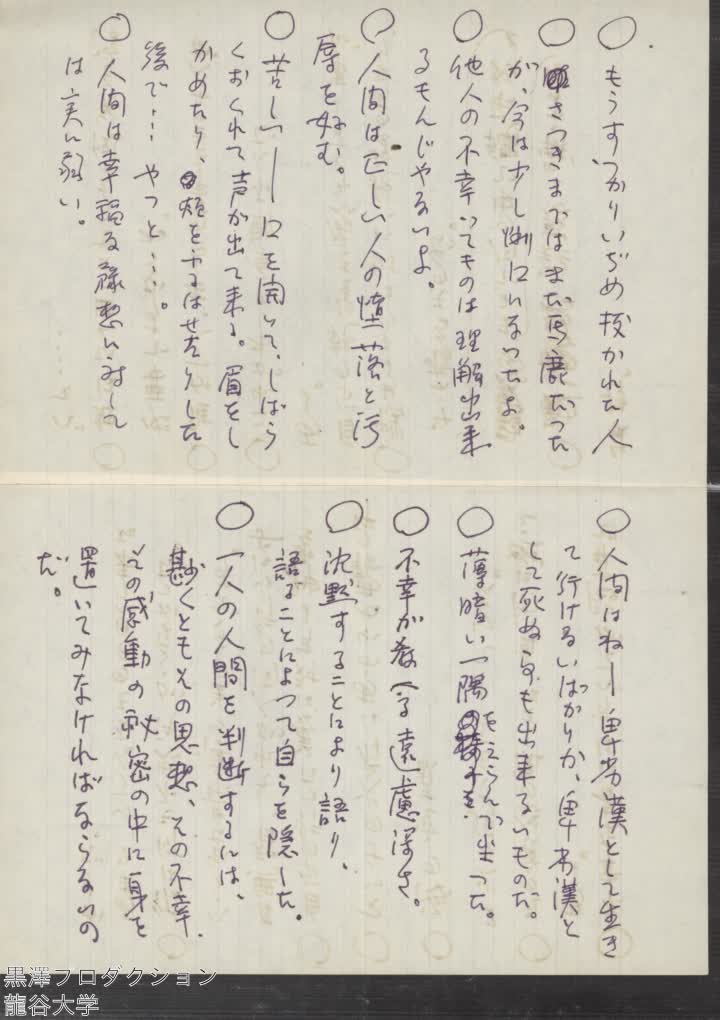 ○ もうすつかりいぢめ抜かれた人
○ さつきまではまだ馬鹿だつた
が、今は少し悧口になつたよ。
○ 他人の不幸つてものは理解出来
るもんじやないよ。
○ 人間は正しい人の堕落と汚
辱を好む。
○ 苦しい——口を開いて、しばら
くおくれて声が出て来る。眉をし
かめたり、頬をふるはせたりした
後で…やつと…。
○ 人間は幸福な豫想に対して
は実に弱い。
○ 人間はねー卑劣漢として生き
て行けないばかりか、卑劣漢と
して死ぬ事も出来ないものだ。
○ 薄暗い陽をえらんで坐つた。
○ 不幸が教へる遠慮深さ。
○ 沈黙することにより語り、
語ることによつて自らを隠した。
○ 一人の人間を判断するには、
尠くともその思想、その不幸、
その感動の秘密の中に身を
置いてみなければならないの
だ。
黒澤プロダクション
龍谷大学